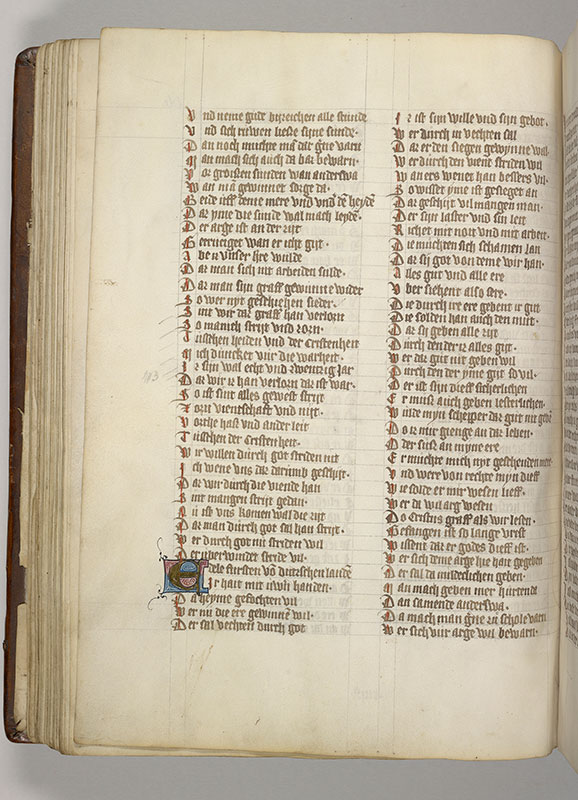 Vnd neme gude bizeichen alle stunde
Vnd sich ruwen liesse sine sunde.
Dan noch muchte mā dar ane varn
Man mach sich auch da bas bewarn.
Vor groissen sunden wan anderswa
Wan mā gewinnet sorge da.
Beide uff deme mere vnd vnd' dē heydē
Dar yme die sunde wal mach leydē.
Der arge ist an der zijt
Gereuiget wan er icht git.
Abe vnser here wulde
Dar man sich nit arbeiden sulde.
Dar man sijn graff gewunne wider
So wer nyt geschiehen sieder.
Sint wir dar graff han verlorn
So manich strijt vnd zorn.
Tusschen heiden vnd der cristenheit
Mich duncket vur die warheit.
Ir sijn wal echt vnd zwentzig jar
Dar wir iz han verlorn dar ist war.
So ist sint alles gewest strijt
Zorn vientschafft vnd nijt.
Vorthe hast vnd ander leit
Tusschen der Cristenheit.
Wir willen durch got striden nit
Ich wene vns dar darumb geschijt.
Dar wir durch die viende han
Sint mangen strijt gedan.
Nu ist vns komen wal die zijt
Dar man durch got sal han strijt.
Wer durch got nit striden wil
Der uberwindet stride vil.
Edele fursten vō dutzschen landē
Ir hait mit uwn handen.
Da heyme gefochten vil
Wer nu die ere gewinnē wil.
Der sal vechten durch got
Ir ist sijn wille vnd sijn gebot.
Wer durch in vechten sal
Dar er den siegen gewynne wal
Wer durch den vient striden wil
Wan ers wenet han bessers vil.
So wisset yme ist gesieget an
Dar geschijt vil mangen man.
Der sijn laster vnd sin leit
Richet mit noit vnd mit arbeit.
Die muchten sich schamen lan
Dar sij got von deme wir han.
Alles gut vnd alle ere
Vber siehent also sere.
Die durch ire ere gebent ir gut
Die solden han auch den mut.
Dar sij geben alle zijt
Durch den der iz alles git.
Wer dar gut nit geben wil
Durch den der yme git so vil.
Der ist sijn dieff sicherlichen
Er muis auch geben lesterlichen.
Wilde myn schepper dar gut nit gebē
Do iz mir gienge an dar leben.
Oder sust an myne ere
Er muchte mich nyt geschenden mere
Vnd wer von rechte myn dieff
Wie solde er mir wesen lieff.
Wer da wil arg wesen
Do Cristus graff als wir lesen.
Gefangen ist so lange vrist
Wissent dar er godes dieff ist.
Wer sich deme arge hie hait gegeben
Der sal da milderlichen geben.
Man mach geben mer hirtendt
Dan samende anderswa.
Da mach man ane zu schole varn
Wer sich vur arge wil bewarn.